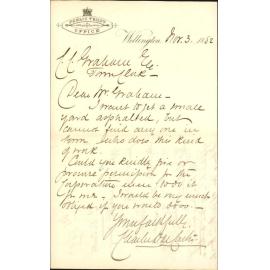 PUBLIC TRUST
OFFICE
Wellington, Nov. 3, 1882
C.C. Graham Esq.
Town Clerk
Dear Mr. Graham -
I want to get a small
yard asphalted, but
cannot find any one in
town who does this kind
of work
Could you kindly give or
procure permission for the
Corporation men to do it
for me. I would be very much
obliged if you would do so. -
Yours faithfully